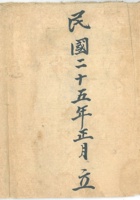 民國二十五年正月立